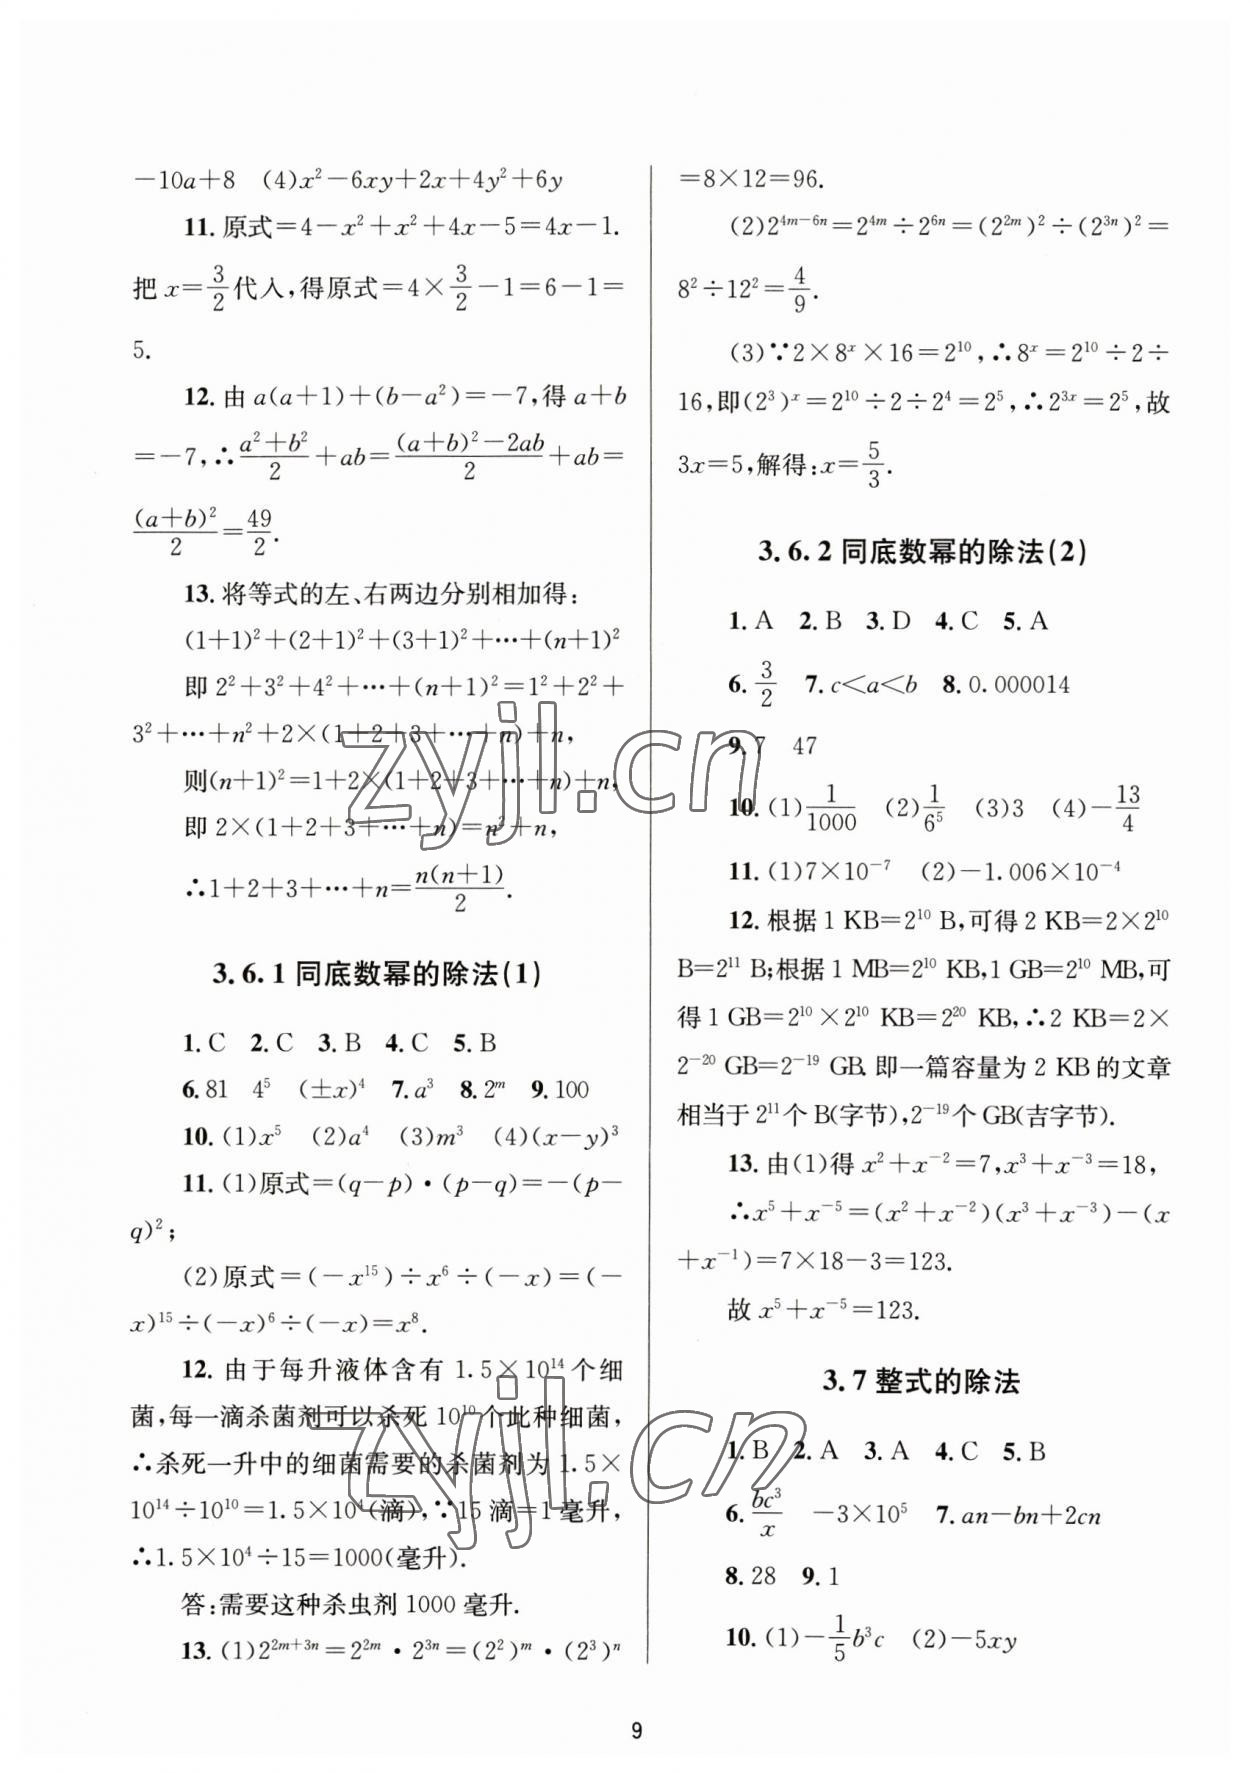 －10a＋8　(4)x²－6xy＋2x＋4y²＋6y
11. 原式＝4－x²＋x²＋4x－5＝4x－1.
把 x＝3/2代入,得原式＝4×3/2－1＝6－1＝
5.
12. 由 a(a＋1)＋(b－a²)＝－7,得 a＋b
＝－7,∴(a²＋b²)/2＋ab＝((a＋b)²－2ab)/2＋ab＝
(a＋b)²/2＝49/2.
13. 将等式的左、右两边分别相加得:
(1＋1)²＋(2＋1)²＋(3＋1)²＋…＋(n＋1)²
即 2²＋3²＋4²＋…＋(n＋1)²＝1²＋2²＋
3²＋…＋n²＋2×(1＋2＋3＋…＋n)＋n,
则(n＋1)²＝1＋2×(1＋2＋3＋…＋n)＋n,
即 2×(1＋2＋3＋…＋n)＝n²＋n,
∴1＋2＋3＋…＋n＝n(n＋1)/2.
3.6.1 同底数幂的除法(1)
1. C　2. C　3. B　4. C　5. B
6. 81　4⁵　(±x)⁴　7. a³　8. 2ᵐ　9. 100
10. (1)x⁵　(2)a⁴　(3)m³　(4)(x－y)³
11. (1)原式＝(q－p)·(p－q)＝－(p－
q)²;
(2)原式＝(－x¹⁵)÷x⁶÷(－x)＝(－
x)¹⁵÷(－x)⁶÷(－x)＝x⁸.
12. 由于每升液体含有 1.5×10¹⁴个细
菌,每一滴杀菌剂可以杀死 10¹⁰个此种细菌,
∴杀死一升中的细菌需要的杀菌剂为 1.5×
10¹⁴÷10¹⁰＝1.5×10⁴(滴),∵15 滴＝1 毫升,
∴1.5×10⁴÷15＝1000(毫升).
答:需要这种杀虫剂 1000 毫升.
13. (1)2²ᵐ⁺³ⁿ＝2²ᵐ·2³ⁿ＝(2²)ᵐ·(2³)ⁿ
＝8×12＝96.
(2)2⁴ᵐ⁻⁶ⁿ＝2⁴ᵐ÷2⁶ⁿ＝(2²ᵐ)²÷(2³ⁿ)²＝
8²÷12²＝4/9.
(3)∵2×8ˣ×16＝2¹⁰,∴8ˣ＝2¹⁰÷2÷
16,即(2³)ˣ＝2¹⁰÷2÷2⁴＝2⁵,∴2³ˣ＝2⁵,故
3x＝5,解得:x＝5/3.
3.6.2 同底数幂的除法(2)
1. A　2. B　3. D　4. C　5. A
6. 3/2　7. c＜a＜b　8. 0.000014
9. 7　47
10. (1)1/1000　(2)1/6⁵　(3)3　(4)－13/4
11. (1)7×10⁻⁷　(2)－1.006×10⁻⁴
12. 根据 1 KB＝2¹⁰ B,可得 2 KB＝2×2¹⁰
B＝2¹¹ B;根据 1 MB＝2¹⁰ KB,1 GB＝2¹⁰ MB,可
得 1 GB＝2¹⁰×2¹⁰ KB＝2²⁰ KB,∴2 KB＝2×
2⁻²⁰ GB＝2⁻¹⁹ GB. 即一篇容量为 2 KB 的文章
相当于 2¹¹个 B(字节),2⁻¹⁹个 GB(吉字节).
13. 由(1)得 x²＋x⁻²＝7,x³＋x⁻³＝18,
∴x⁵＋x⁻⁵＝(x²＋x⁻²)(x³＋x⁻³)－(x
＋x⁻¹)＝7×18－3＝123.
故 x⁵＋x⁻⁵＝123.
3.7 整式的除法
1. B　2. A　3. A　4. C　5. B
6. bc³/x　－3×10⁵　7. an－bn＋2cn
8. 28　9. 1
10. (1)－1/5b³c　(2)－5xy
9
zyjl.cn
zyjl.cn